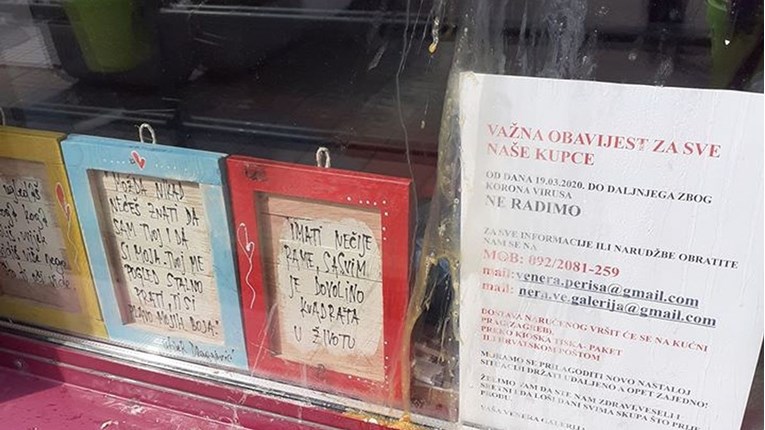 MOŽDA NIKAD
NEĆEŠ ZNATI DA
SAM TVOJ I DA
SI MOJA. TVOJ ME
POGLED STALNO
PRATI, TI SI
PLAVO MOJIH BODA.
IMATI NEČIJE
RAME, SASVIM
JE DOVOLJNO
KVADRATA
U ŽIVOTU
VAŽNA OBAVIJEST ZA SVE
NAŠE KUPCE
OD DANA 19.03.2020. DO DALJNJEGA ZBOG
KORONA VIRUSA
NE RADIMO
ZA SVE INFORMACIJE ILI NARUDŽBE OBRATITE
NAM SE NA
MOB: 092/2081-259
mail:venera.perisa@gmail.com
mail: nera.ve.galerija@gmail.com
DOSTAVA NARUČENOG VRŠIT ĆE SE NA KUĆNI
PRAG/ZAGREB,
PREKO KIOSKA TISKA- PAKET
ILI HRVATSKOM POŠTOM
MORAMO SE PRILAGODITI NOVO NASTALOJ
SITUACIJI DRŽATI UDALJENO A OPET ZAJEDNO!
ŽELIMO VAM DA STE NAM ZDRAVI, VESELI I
DA LOŠI DANI SVIMA SKUPA ŠTO PRIJE
VAŠA VENERA GALERIJA